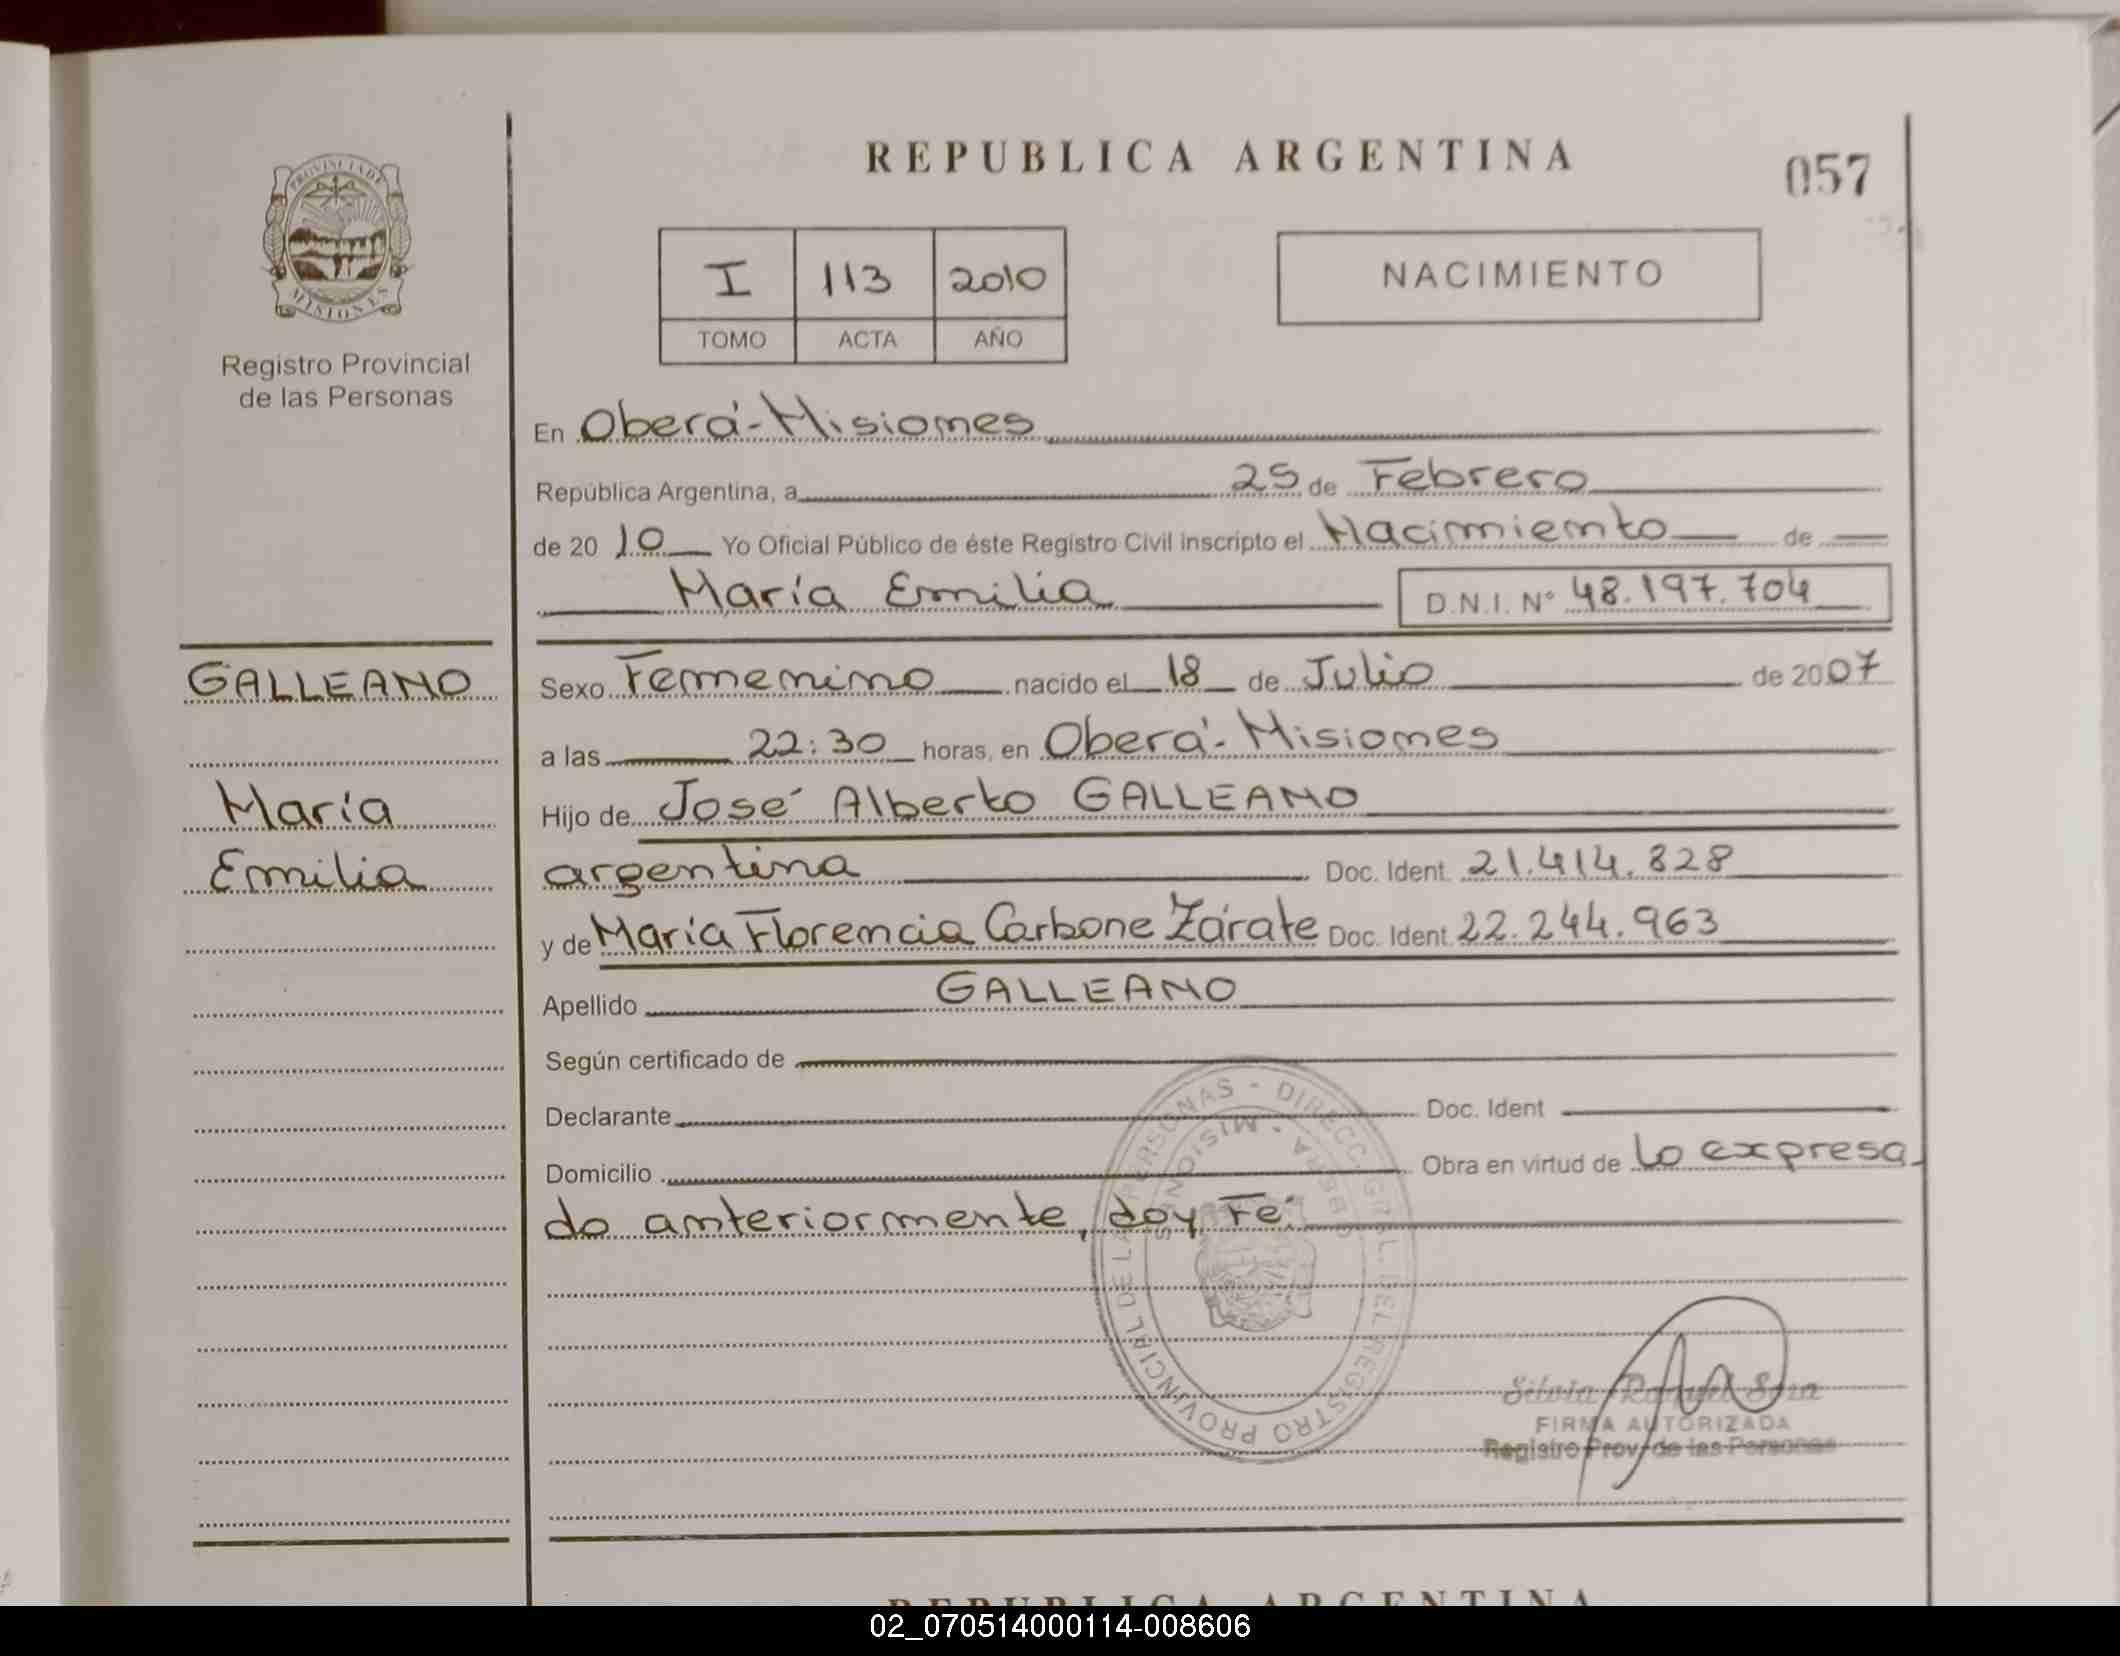 REPUBLICA ARGENTINA
057
PROVINCIA DE MISIONES
Registro Provincial
de las Personas
I 113 2010
TOMO ACTA AÑO
NACIMIENTO
En Oberá-Misiones
República Argentina, a 25 de Febrero
de 2010 Yo Oficial Público de éste Registro Civil inscripto el Nacimiento de
María Emilia D.N.I. Nº 48.197.704
GALLEANO
María
Emilia
Sexo Femenino nacido el 18 de Julio de 2007
a las 22:30 horas, en Oberá-Misiones
Hijo de José Alberto GALLEANO
argentina Doc. Ident. 21.414.828
y de María Florencia Carbone Zárate Doc. Ident. 22.244.963
Apellido GALLEANO
Según certificado de
Declarante Doc. Ident
Domicilio Obra en virtud de lo expresa-
do anteriormente, doy Fé.
DIRECC. GRAL. DEL REGISTRO PROVINCIAL DE LAS PERSONAS -
OBERA - MISIONES
Silvia Raquel Sosa
FIRMA AUTORIZADA
Registro Prov. de las Personas
REPUBLICA ARGENTINA
02_070514000114-008606